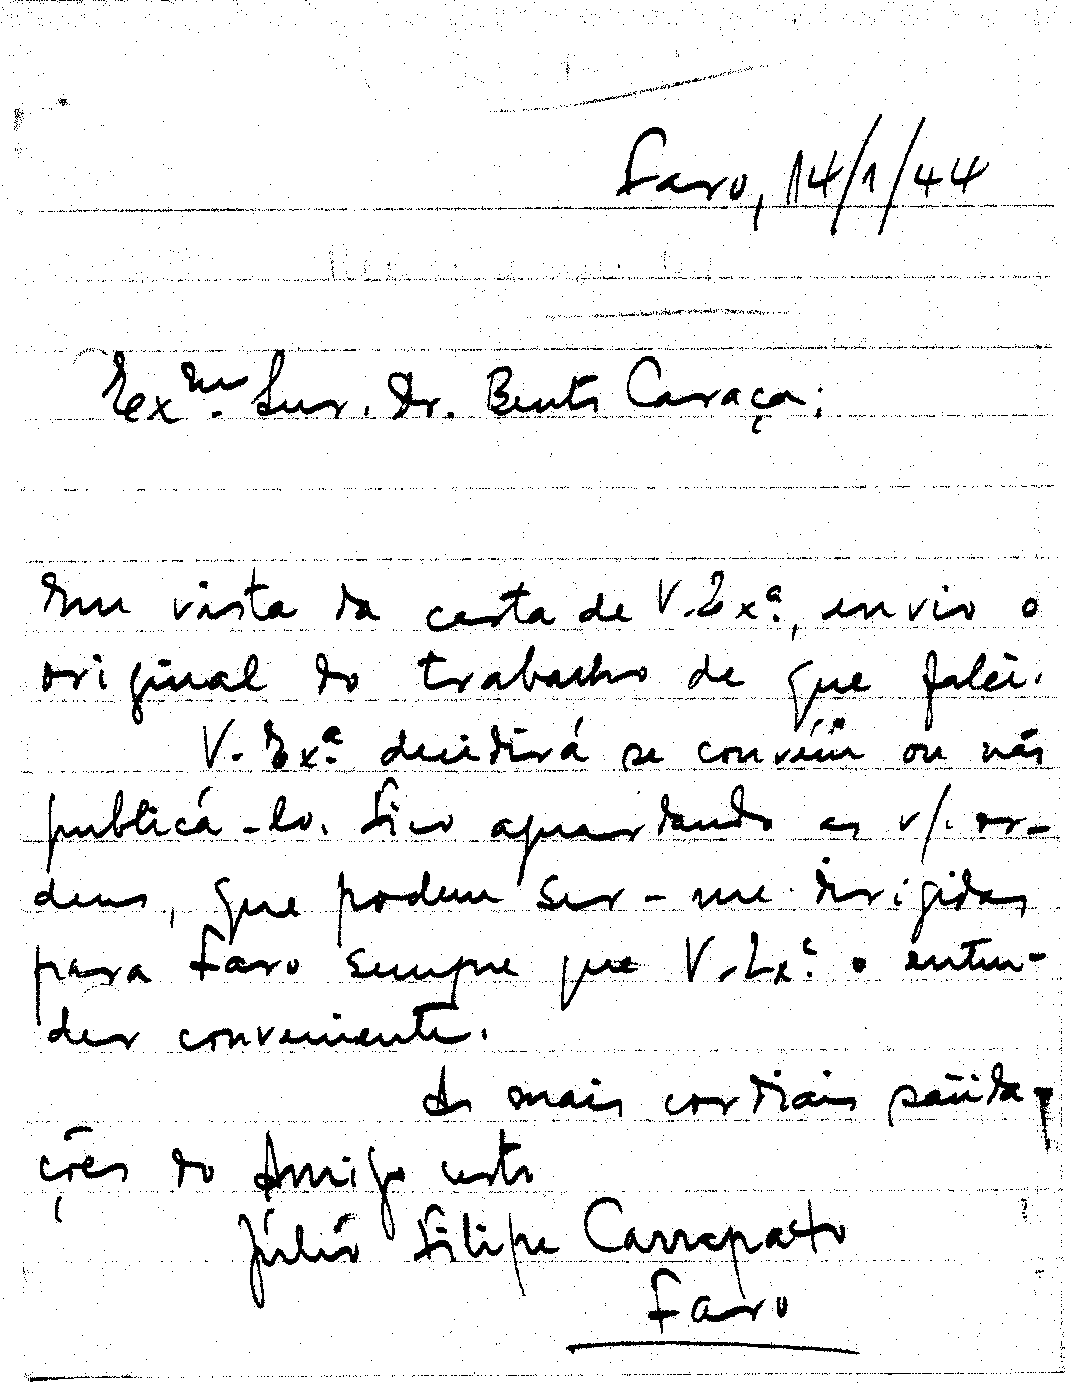 Faro, 14/1/44
Exmº. Snr. Dr. Bento Caraça:
Em vista da carta de V. Exª., envio o
original do trabalho de que falei.
V. Exª. decidirá se convém ou não
publicá-lo. Fico aguardando as v/. or-
dens, que podem ser-me dirigidas
para Faro sempre que V. Exª. o enten-
der conveniente.
As mais cordiais saüda-
ções do Amigo certo
Júlio Filipe Carrapato
Faro